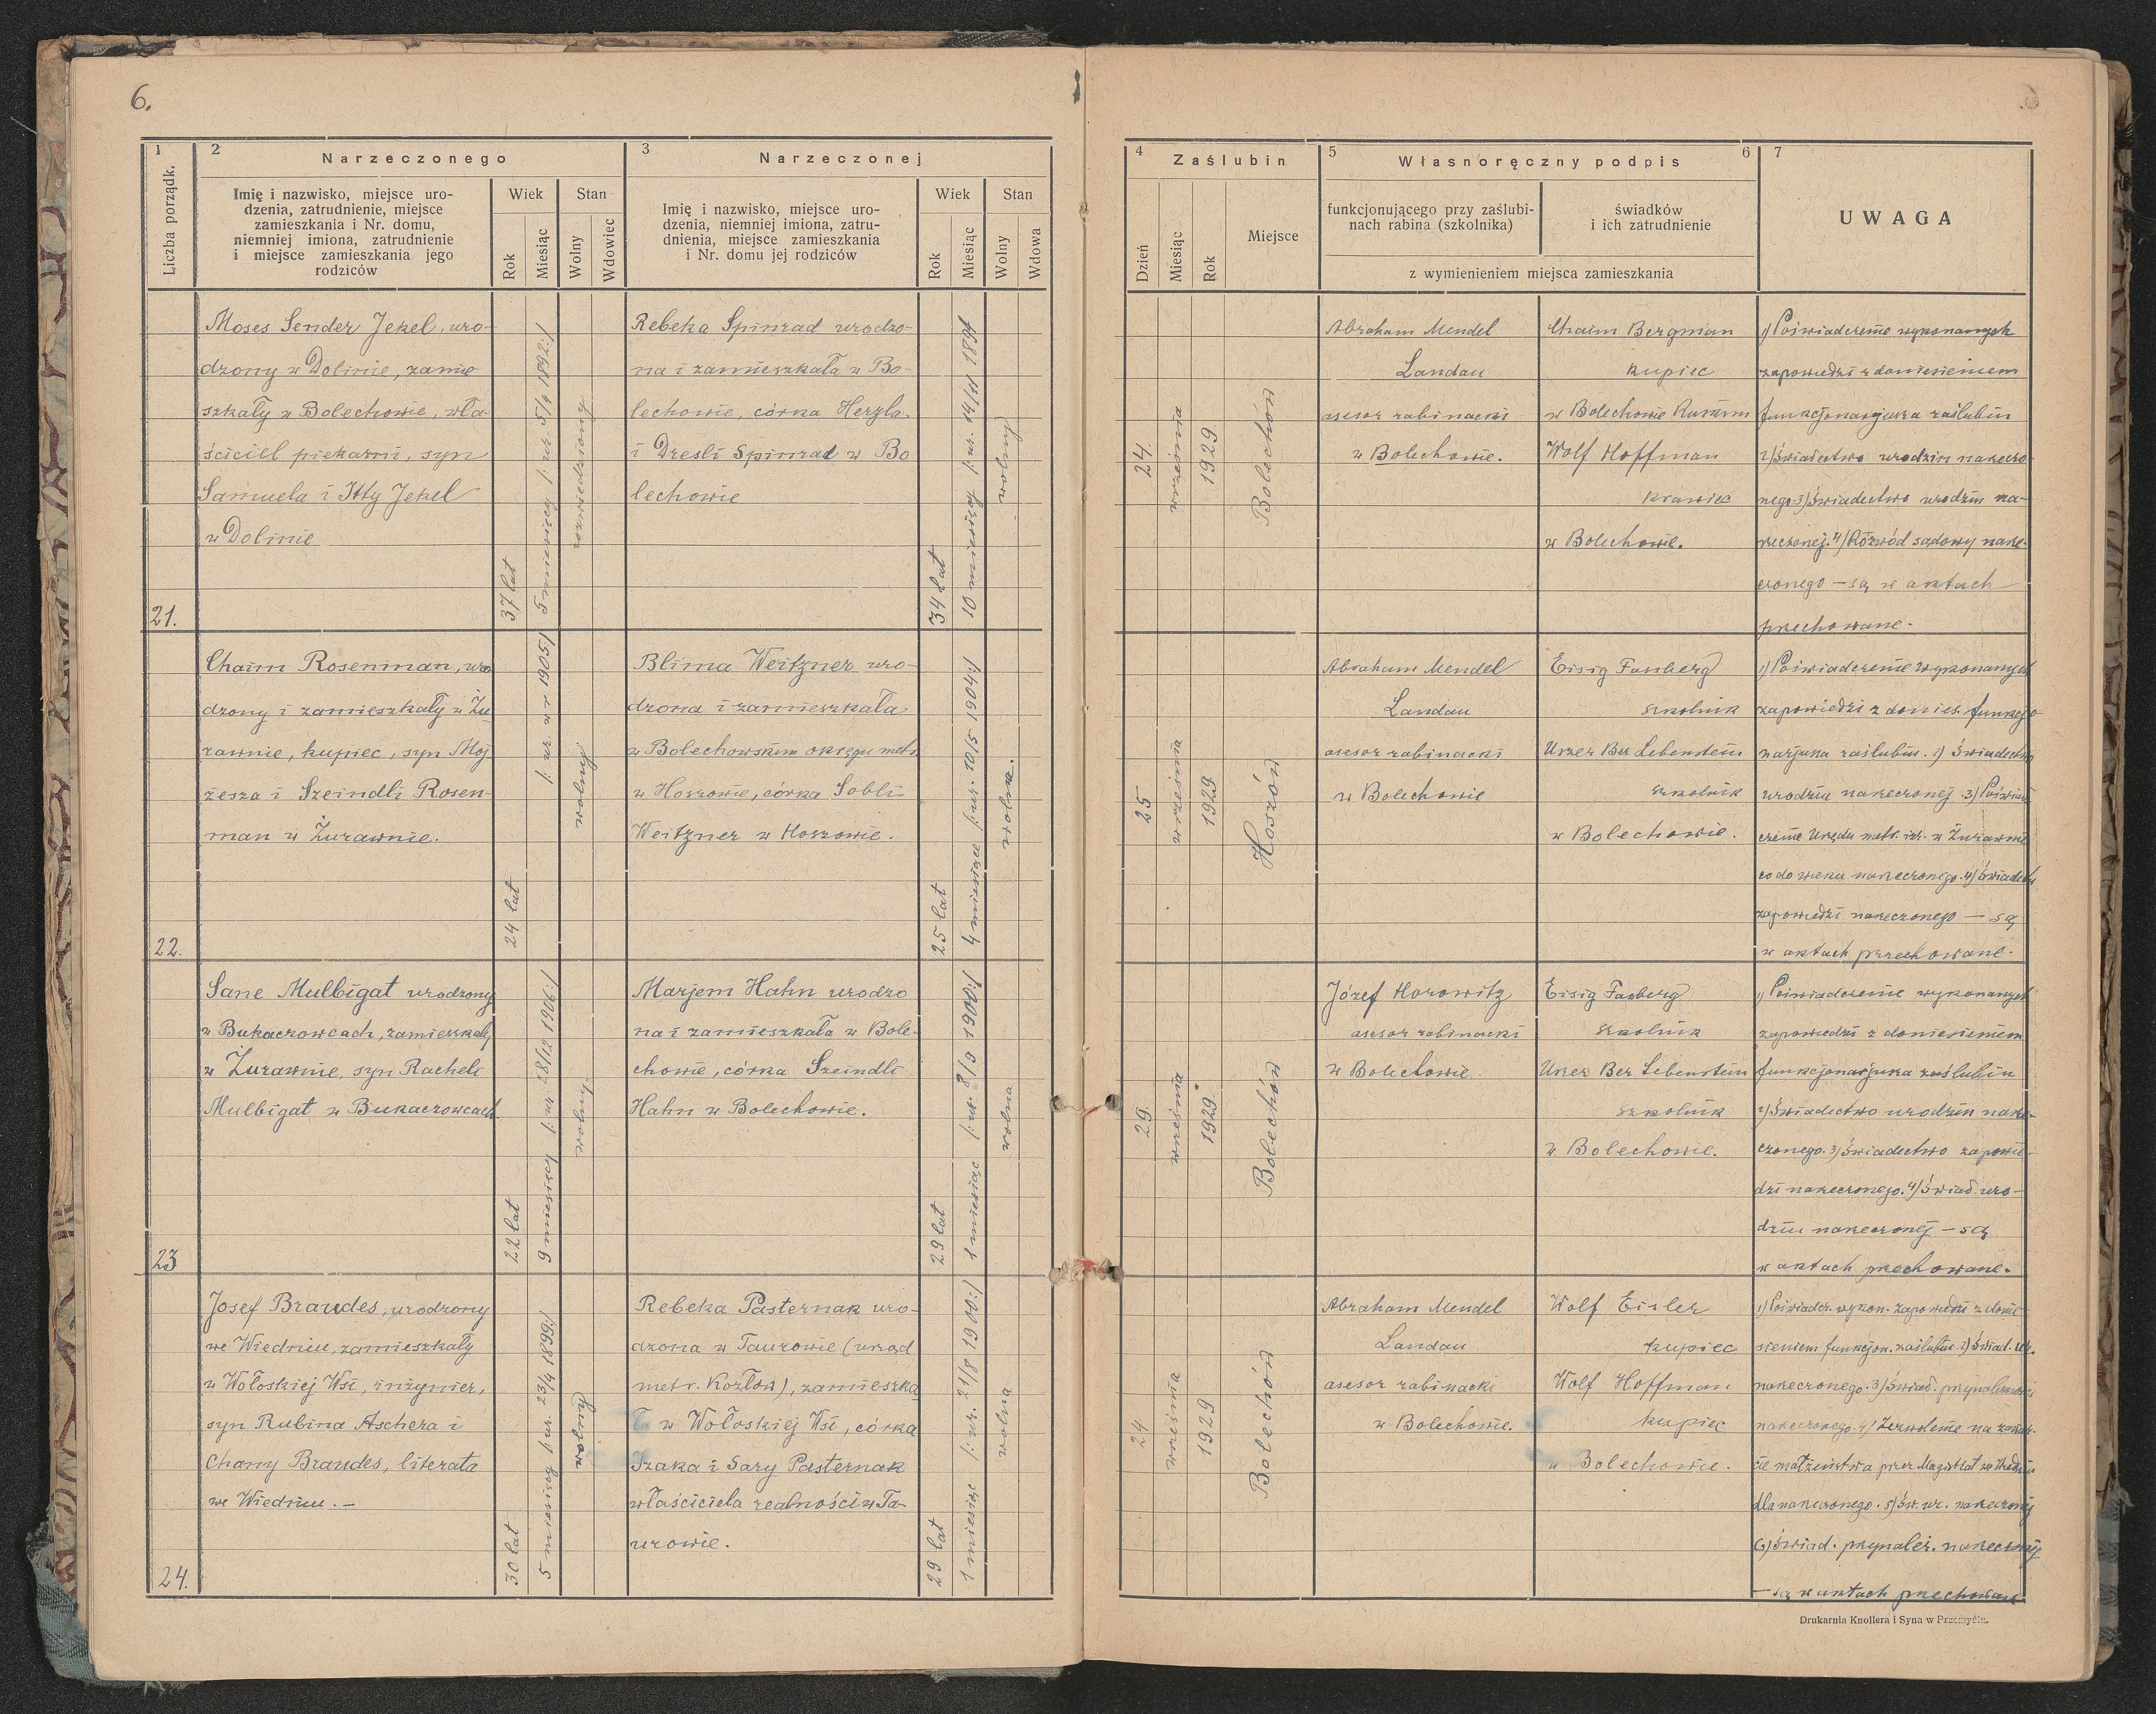 6.
1
Liczba porządk.
2
Narzeczonego
Imię i nazwisko, miejsce uro-
dzenia, zatrudnienie, miejsce
zamieszkania i Nr. domu,
niemniej imiona, zatrudnienie
i miejsce zamieszkania jego
rodziców
Wiek
Rok
Miesiąc
Stan
Wolny
Wdowiec
3
Narzeczonej
Imię i nazwisko, miejsce uro-
dzenia, niemniej imiona, zatru-
dnienia, miejsce zamieszkania
i Nr. domu jej rodziców
Wiek
Rok
Miesiąc
Stan
Wolny
Wdowa
4
Zaślubin
Dzień
Miesiąc
Rok
Miejsce
5
Własnoręczny podpis
6
funkcjonującego przy zaślubi-
nach rabina (szkolnika)
świadków
i ich zatrudnienie
z wymienieniem miejsca zamieszkania
7
UWAGA
21.
Moses Sender Jekel, uro-
dzony w Dolinie, zamie
szkały w Bolechowie, wła-
ściciel piekarni, syn
Samuela i Itty Jekel
w Dolinie
37 lat
5 miesięcy /: ur. 5/4 1892:/
rozwiedziony
Rebeka Spinrad urodzo-
na i zamieszkała w Bo-
lechowie, córka Herzla
i Dresli Spinrad w Bo
lechowie
34 lat
10 miesięcy /: ur. 14/11 1894
wolny
24.
września
1929
Bolechów
Abraham Mendel
Landau
asesor rabinacki
w Bolechowie.
Chaim Bergman
kupiec
w Bolechowie Ruskim
Wolf Hoffman
krawiec
w Bolechowie.
1) Poświadczenie wykonanych
zapowiedzi z doniesieniem
funkcjonarjusza zaślubin
2) Świadectwo urodzin narzeczo-
nego 3) Świadectwo urodzin na-
rzeczonej. 4) Rozwód sądowy narze-
czonego — są w aktach
przechowane.
22.
Chaim Rosenman, uro
dzony i zamieszkały w Żu
rawnie, kupiec, syn Moj
żesza i Szeindli Rosen-
man w Żurawnie.
24 lat
/: ur. w r 1905/
wolny
Blima Weitzner uro-
dzona i zamieszkała
w Bolechowskim okręgu metr.
w Hoszowie, córka Sobli
Weitzner w Hoszowie.
25 lat
4 miesiące /: ur. 10/5 1904:/
wolna.
25
września
1929
Hoszów
Abraham Mendel
Landau
asesor rabinacki
w Bolechowie
Eisig Fassberg
szkolnik
Uszer Ber Lebenstein
szkolnik
w Bolechowie.
1) Poświadczenie wykonanych
zapowiedzi z donies. funkcjo-
narjusza zaślubin. 2) Świadectwo
urodzin narzeczonej 3) Poświad
czenie Urzędu metr. izr. w Żurawnie
co do wieku narzeczonego. 4) Świadectw
zapowiedzi narzeczonego — są
w aktach przechowane.
23
Sane Mulbigat urodzony
w Bukaczowcach, zamieszkały
w Żurawnie, syn Racheli
Mulbigat w Bukaczowcach
22 lat
9 miesięcy /: ur 28/12 1906:/
wolny.
Marjem Hahn urodzo
na i zamieszkała w Bole-
chowie, córka Szeindli
Hahn w Bolechowie.
29 lat
1 miesiąc /: ur. 8/9 1900:/
wolna
29.
września
1929.
Bolechów
Józef Horowitz
asesor rabinacki
w Bolechowie.
Eisig Fassberg
szkolnik
Uszer Ber Lebenstein
szkolnik
w Bolechowie.
1) Poświadczenie wykonanych
zapowiedzi z doniesieniem
funkcjonarjusza zaślubin
2) Świadectwo urodzin narze-
czonego. 3) Świadectwo zapowie-
dzi narzeczonego. 4) Świad. uro-
dzin narzeczonej — są
w aktach przechowane.
24.
Josef Brandes, urodzony
we Wiedniu, zamieszkały
w Wołoskiej Wsi, inżynier,
syn Rubina Aschera i
Chany Brandes, literata
we Wiedniu. —
30 lat
5 miesięcy /: ur. 23/4 1899:/
wolny
Rebeka Pasternak uro-
dzona w Taurowie (urząd
metr. Kozłów), zamieszka
ła w Wołoskiej Wsi, córka
Izaka i Sary Pasternak
właściciela realności w Ta-
urowie.
29 lat
1 miesiąc /: ur. 21/8 1900:/
wolna
24
września
1929
Bolechów
Abraham Mendel
Landau
asesor rabinacki
w Bolechowie.
Wolf Eisler
kupiec
Wolf Hoffman
kupiec
w Bolechowie.
1) Poświadcz. wykon. zapowiedzi z donie-
sieniem funkcjon. zaślubin. 2) Świad. ur.
narzeczonego. 3) Świad. przynależności
narzeczonego. 4) Zezwolenie na zawar-
cie małżeństwa przez Magistrat we Wiedniu
dla narzeczonego. 5) Św. ur. narzeczonej
6) Świad. przynależ. narzeczonej
— są w aktach przechowane
Drukarnia Knollera i Syna w Przemyślu.